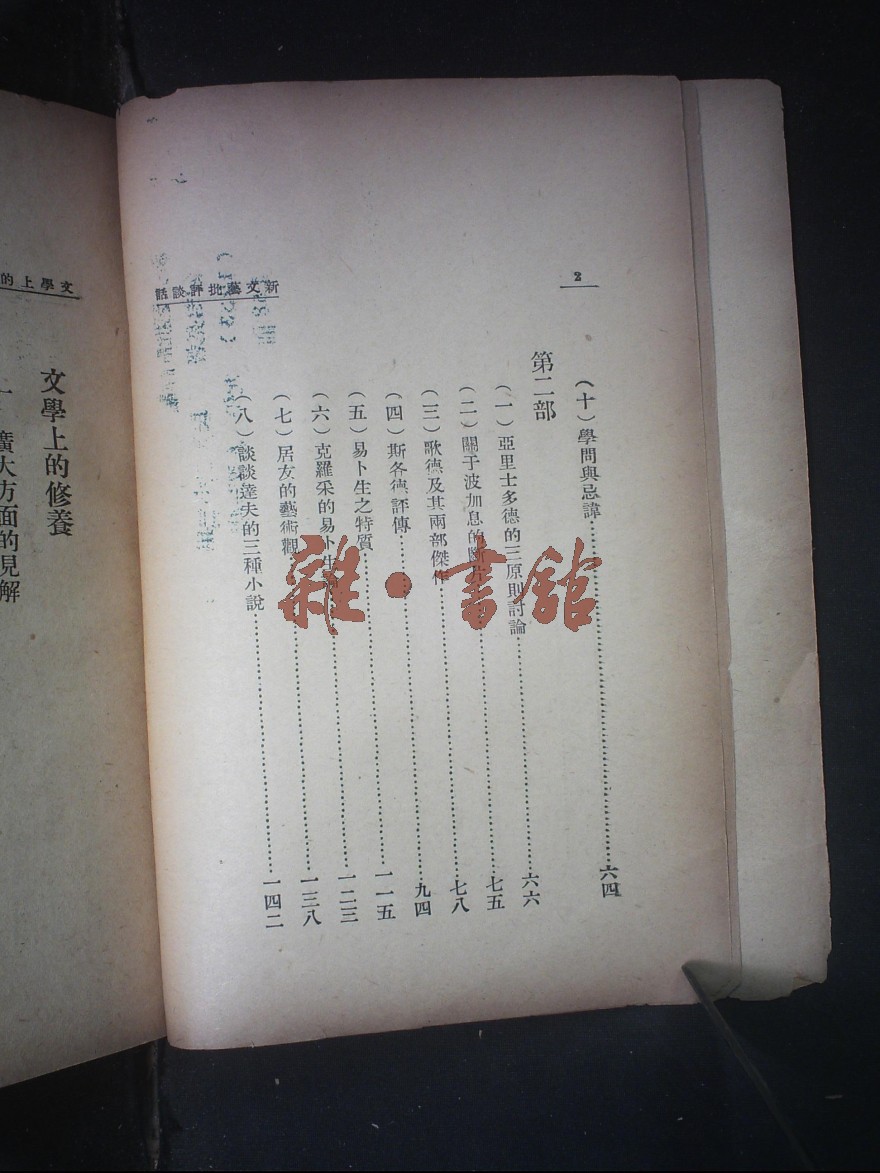 2
新文藝批評談話
（十）學問與忌諱……六四
第二部
（一）亞里士多德的三原則討論……六六
（二）關于波加息的斷片……七五
（三）歌德及其兩部傑作……七八
（四）斯各德評傳……九四
（五）易卜生之特質……一一五
（六）克羅采的易卜生……一二三
（七）居友的藝術觀……一三八
（八）談談達夫的三種小說……一四二
文學上的
文學上的修養
一 廣大方面的見解
雜·書館